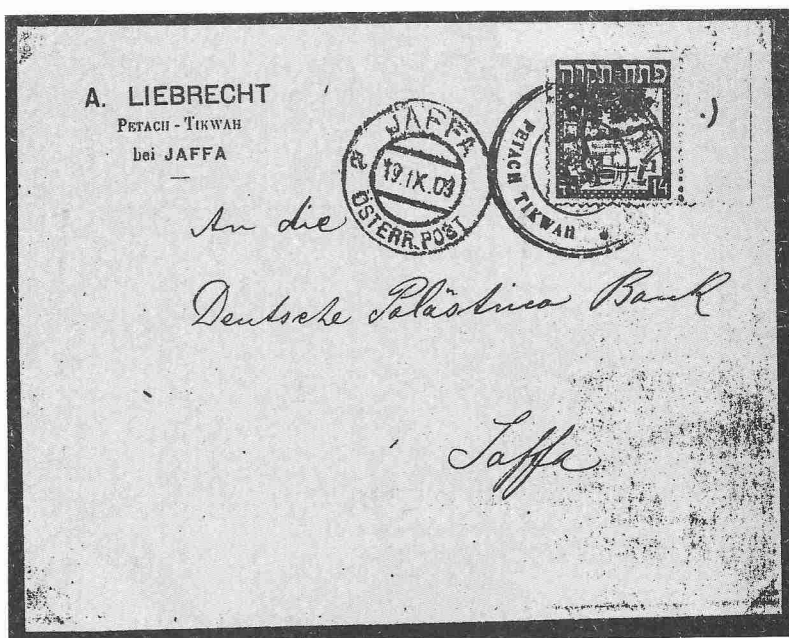 A. LIEBRECHT
PETACH - TIKWAH
bei JAFFA
JAFFA
a
19.IX.09
ÖSTERR. POST
PETACH TIKWAH
פתח-תקוה
14
An die
Deutsche Palästina Bank
Jaffa